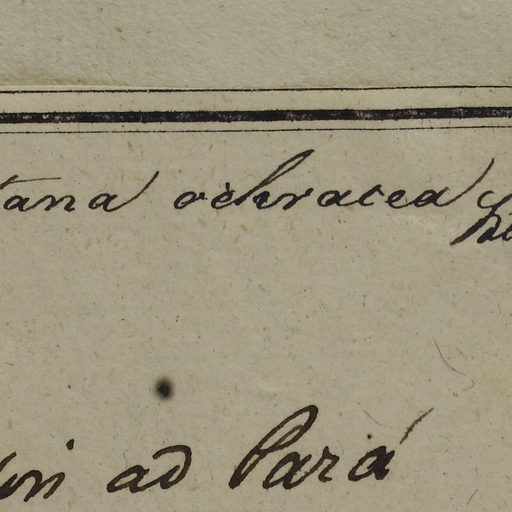 tana ochracea
ad Pará